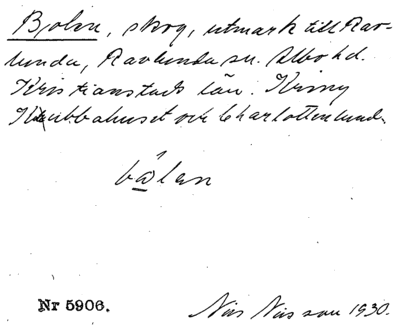 Bjolin, skog, utmark till Rav-
lunda, Ravlunda sn. Albo hd.
Kristianstads län. Kring
Klubbahuset och Charlottenlund.
bålan
Nr 5906.
Nils Nilsson 1930.